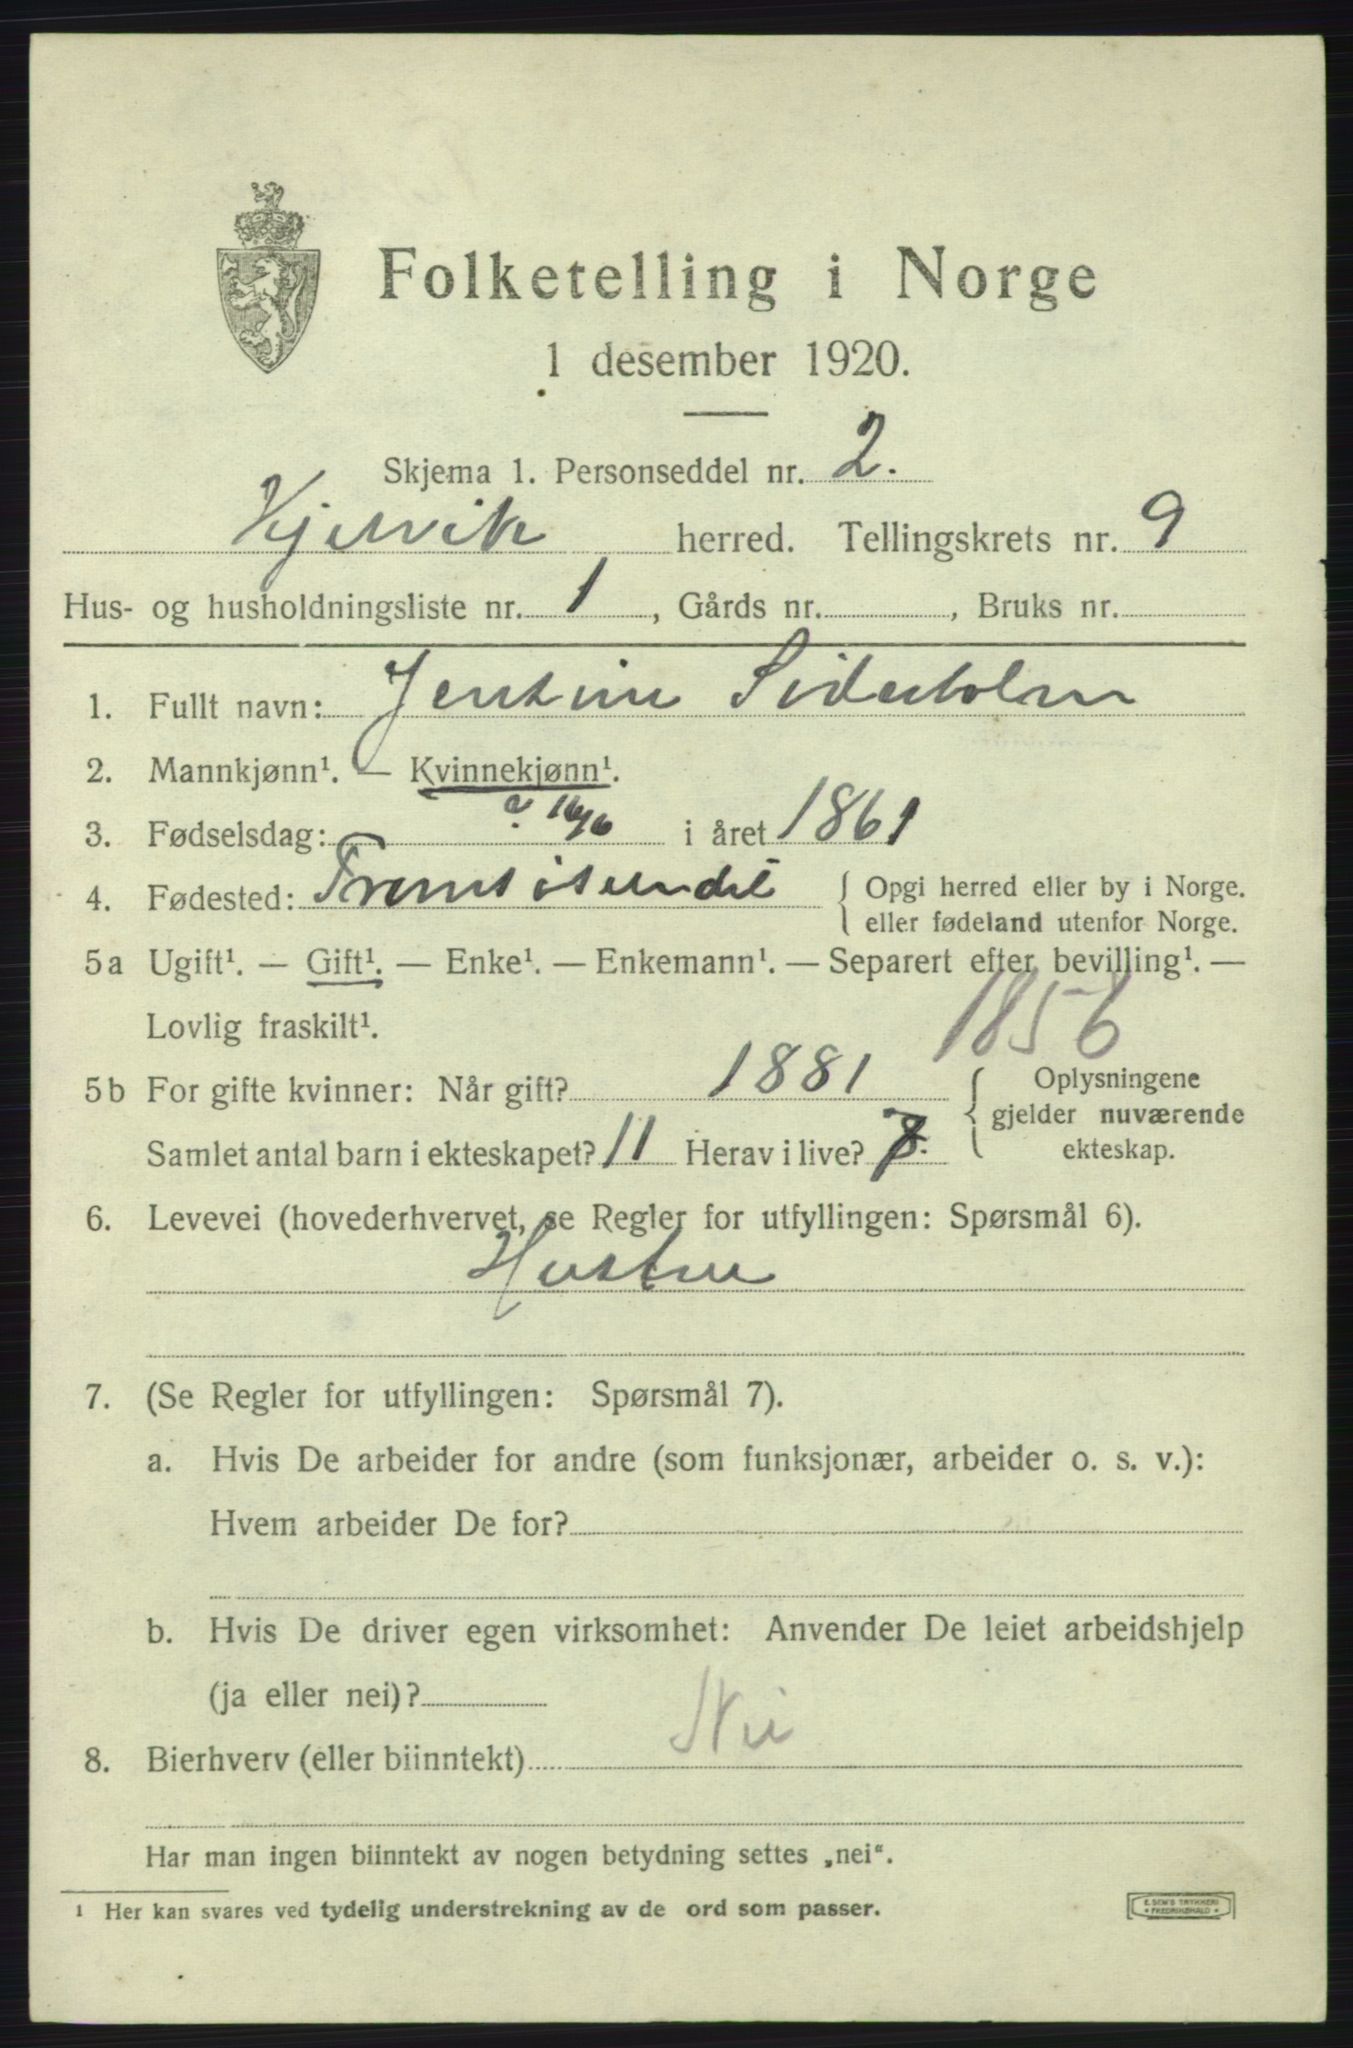 Folketelling i Norge
1 desember 1920.
Skjema 1. Personseddel nr. 2.
Kjelvik herred. Tellingskrets nr. 9
Hus- og husholdningsliste nr. 1, Gårds nr. , Bruks nr.
1. Fullt navn: Jentine
2. Mannkjønn¹. — Kvinnekjønn¹.
3. Fødselsdag: ? 16/6 i året 1861
4. Fødested: Tromsøsundet { Opgi herred eller by i Norge.
eller fødeland utenfor Norge.
5a Ugift¹. — Gift¹. — Enke¹. — Enkemann¹. — Separert efter bevilling¹. —
Lovlig fraskilt¹. 1856
5b For gifte kvinner: Når gift? 1881 { Oplysningene
gjelder nuværende
Samlet antal barn i ekteskapet? 11 Herav i live? ekteskap.
6. Levevei (hovederhvervet, se Regler for utfyllingen: Spørsmål 6).
Hustru
7. (Se Regler for utfyllingen: Spørsmål 7).
a. Hvis De arbeider for andre (som funksjonær, arbeider o. s. v.):
Hvem arbeider De for?
b. Hvis De driver egen virksomhet: Anvender De leiet arbeidshjelp
(ja eller nei)?
8. Bierhverv (eller biinntekt) Nei
Har man ingen biinntekt av nogen betydning settes „nei“.
1 Her kan svares ved tydelig understrekning av de ord som passer.
E. SEM'S TRYKKERI
• FREDRIKSHALD •